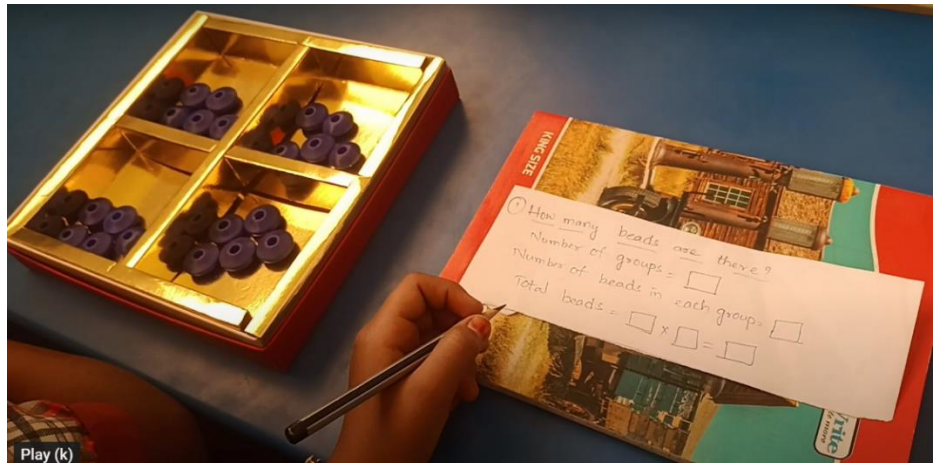 KING SIZE
① How many beads are there?
Number of groups = □
Number of beads in each group = □
Total beads = □ × □ = □
Write
& more
Play (k)